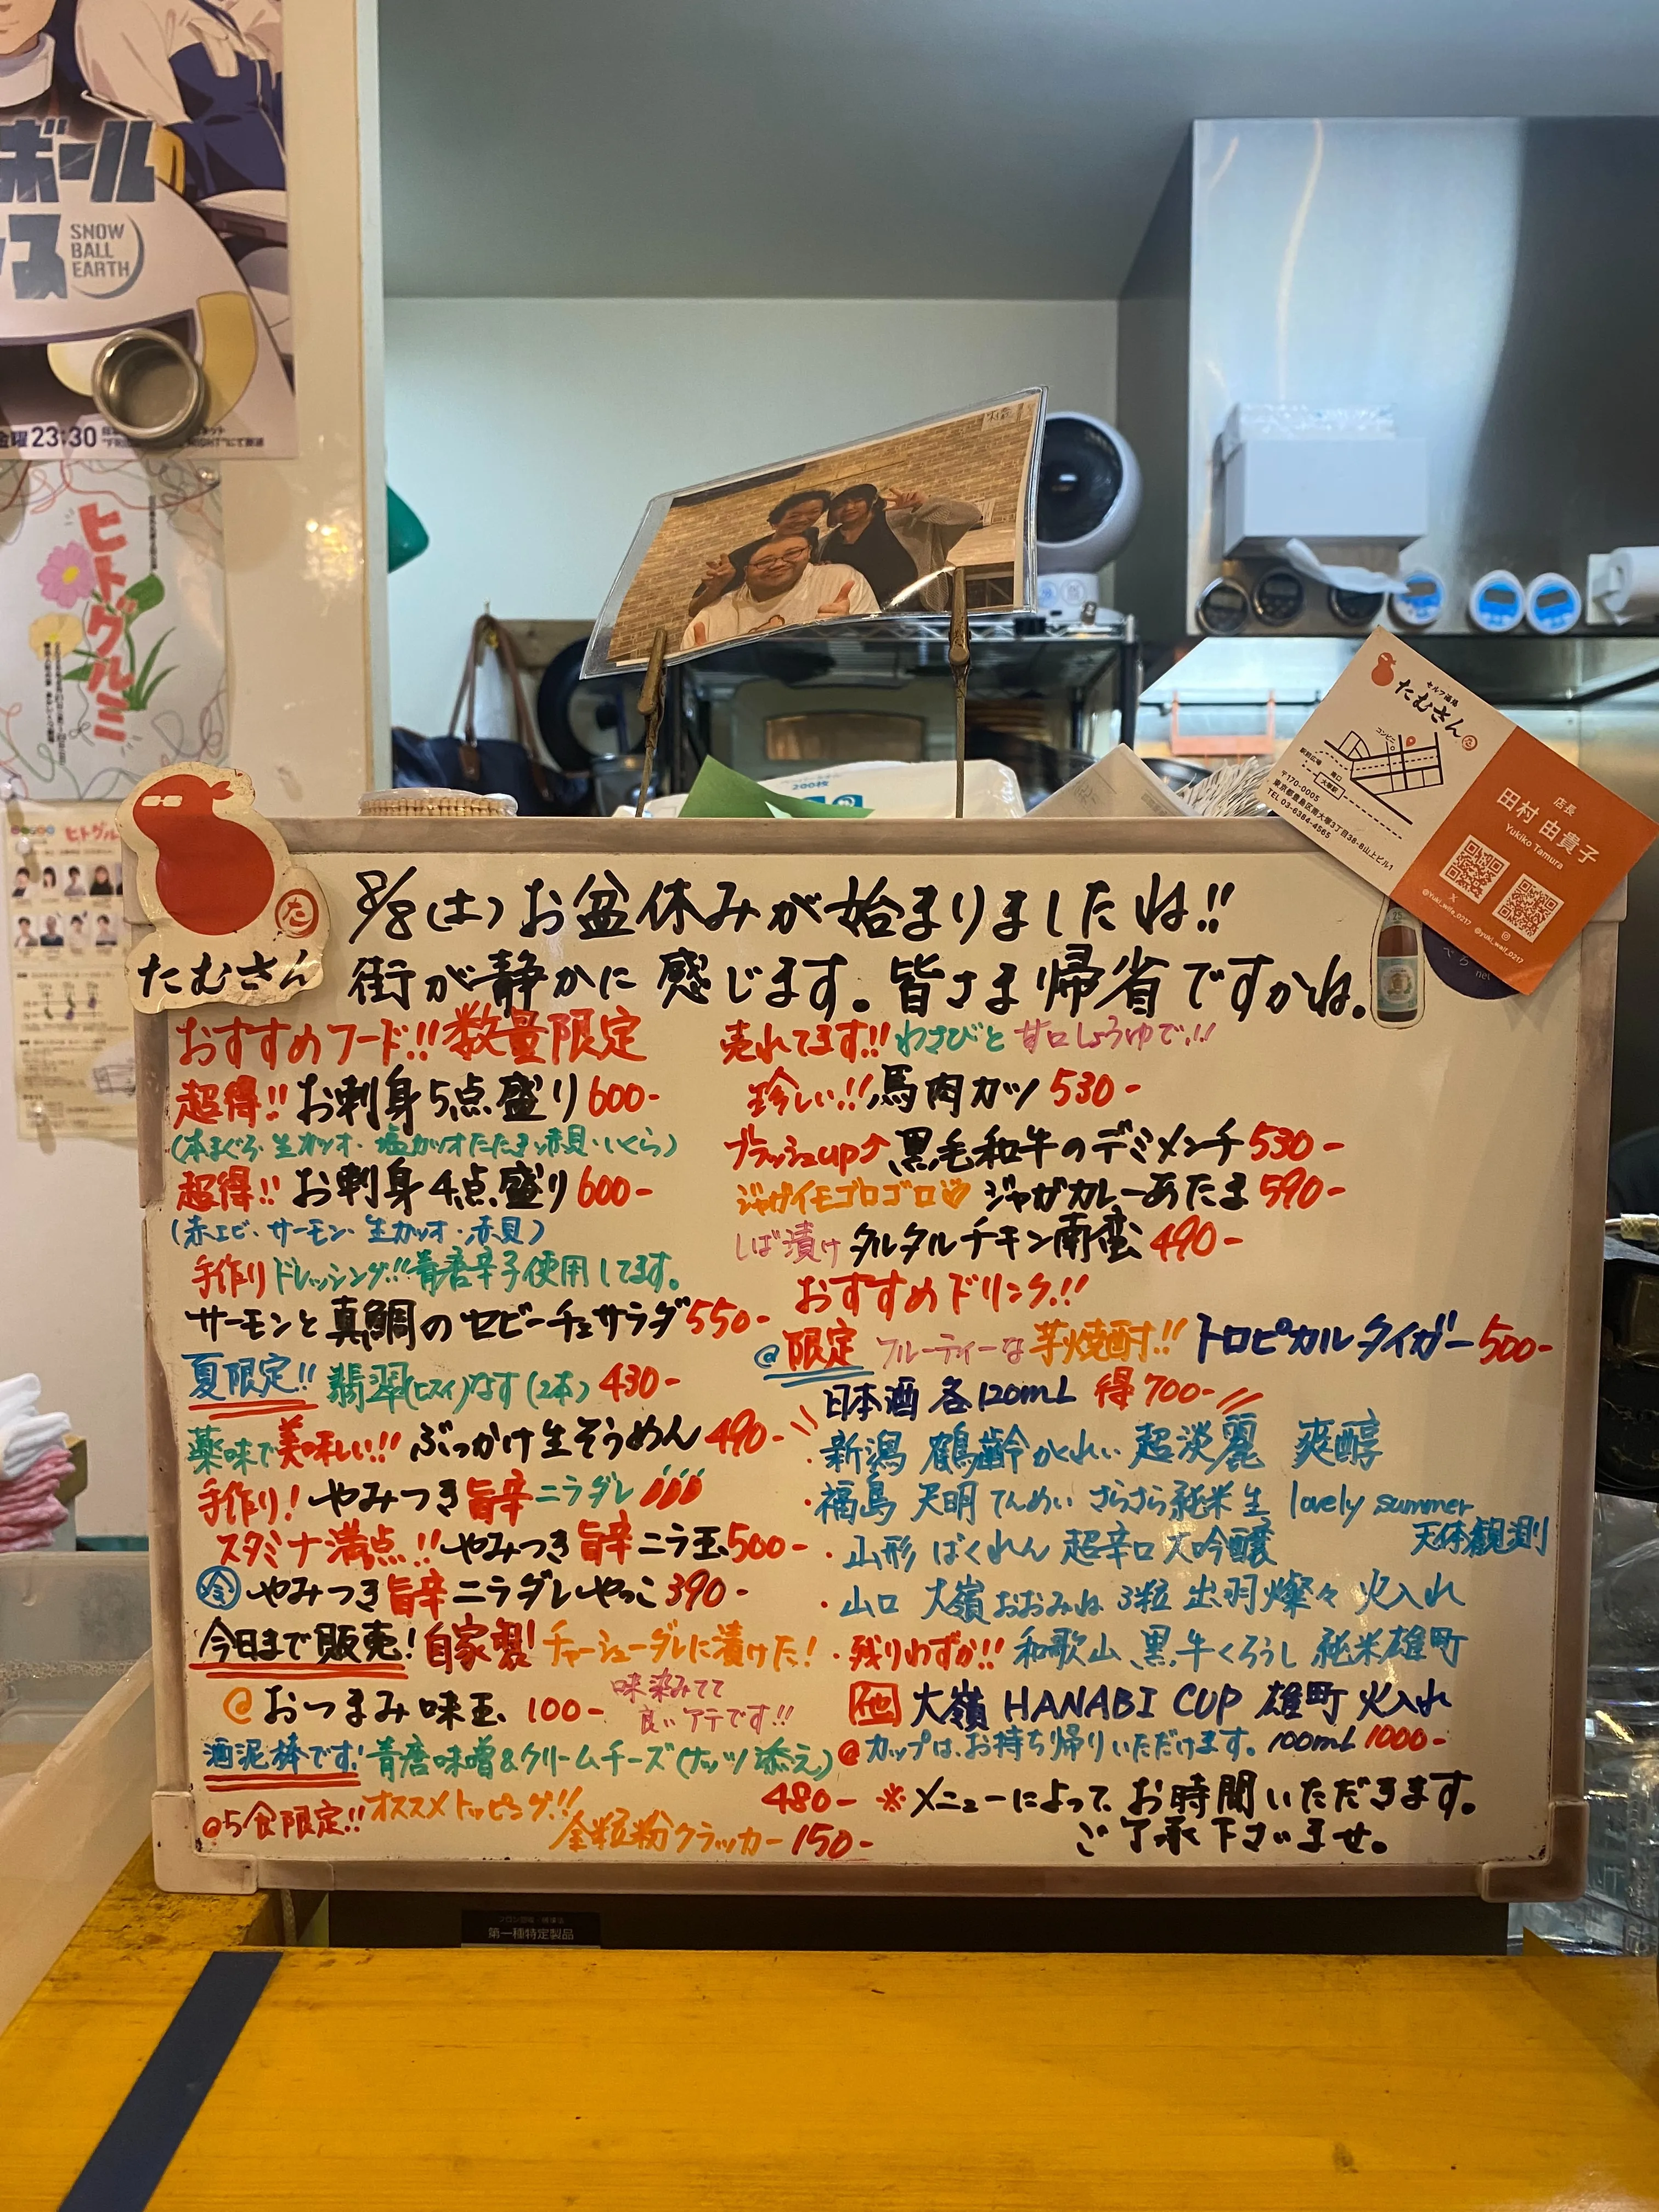 ボール
ス
SNOW
BALL
EARTH
金曜23:30
ヒトグルミ
ヒトグル
200枚
セルフ酒場
たむさん
コンビニ
南口
大塚駅
〒170-0005
東京都豊島区南大塚3丁目38-8山上ビル1
TEL 03-6384-4565
店長
田村 由貴子
Yukiko Tamura
@Yuki_wife_0217
@yuki_waif_0217
たむさん
8/8(土)お盆休みが始まりましたね!!
街が静かに感じます。皆さま帰省ですかね。
おすすめフード!!数量限定
超得!!お刺身5点盛り600-
(本まぐろ・生カツオ・塩カツオたたき・赤貝・いくら)
超得!!お刺身4点盛り600-
(赤エビ・サーモン・生カツオ・赤貝)
手作りドレッシング!!青唐辛子使用してます。
サーモンと真鯛のセビーチェサラダ550-
夏限定!!翡翠(ヒスイ)なす(2本)430-
薬味で美味しい!!ぶっかけ生そうめん490-
手作り!やみつき旨辛ニラダレ
スタミナ満点!!やみつき旨辛ニラ玉500-
冷 やみつき旨辛ニラダレやっこ390-
今日まで販売!自家製!チャーシューダレに漬けた!
@おつまみ味玉 100- 味染みてて
良いアテです!!
酒泥棒です!青唐味噌&クリームチーズ(ナッツ添え)
480-
@5食限定!!オススメトッピング!!
全粒粉クラッカー150-
売れてます!!わさびと甘口しょうゆで!!
珍しい!!馬肉カツ530-
ブラッシュup↑黒毛和牛のデミメンチ530-
ジャガイモゴロゴロ♡ジャガカレーあたま590-
しば漬けタルタルチキン南蛮490-
おすすめドリンク!!
@限定 フルーティーな芋焼酎!!トロピカルタイガー500-
日本酒 各120mL 得700-
・新潟 鶴齢 かくれい 超淡麗 爽醇
・福島 天明 てんめい さらさら純米生 lovely summer
天体観測
・山形 ばくれん 超辛口大吟醸
・山口 大嶺おおみね 3粒 出羽燦々 火入れ
・残りわずか!!和歌山、黒牛くろうし 純米雄町
他 大嶺 HANABI CUP 雄町 火入れ
@カップは、お持ち帰りいただけます。100mL 1000-
※メニューによって、お時間いただきます。
ご了承下さいませ。
第一種特定製品